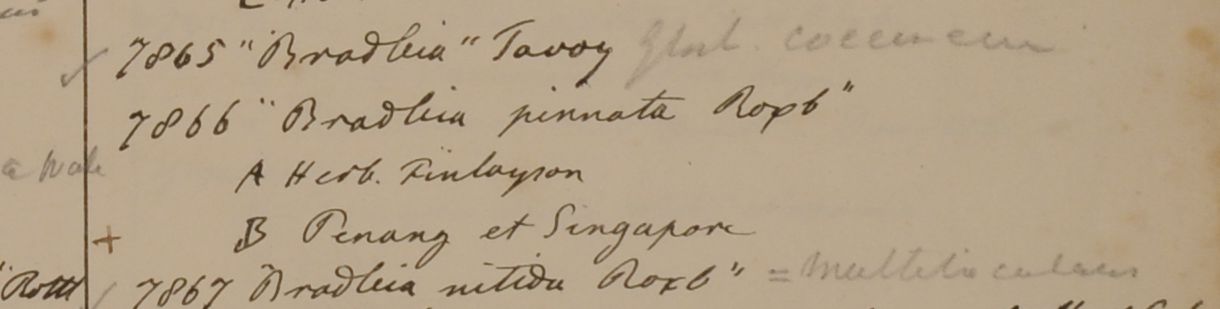 7865 "Bradleia" Tavoy Gloch. coccineum
7866 "Bradleia pinnata Roxb"
A Herb. Finlayson
B Penang et Singapore
+
"Rottl
7867 Bradleia nitida Roxb" = multilocularis